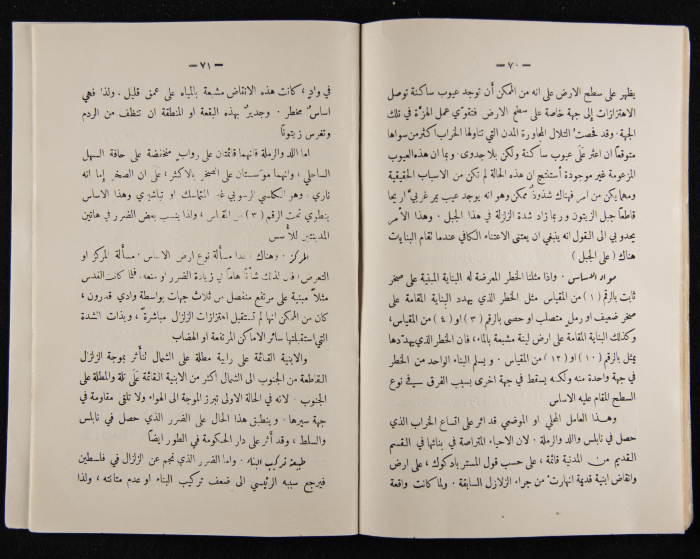 — ٧٠ —
يظهر على سطح الارض على انه من الممكن أن توجد عيوب ساكنة توصل
الاهتزازات إلى جهة خاصة على سطح الارض فتقوي عمل الهزة في تلك
الجهة. وقد فحصت التلال المجاورة المدن التي تناولها الخراب أكثر من سواها
متوقعاً ان اعثر على عيوب ساكنة ولكن بلا جدوى. وبما ان هذه العيوب
المزعومة غير موجودة أستنتج ان هذه الحالة لم تكن من الاسباب الحقيقية
ومهما يكن من امر فهناك شذوذ ممكن وهو انه يوجد عيب يمر غربي اريحا
قاطعاً جبل الزيتون وربما زاد شدة الزلزلة في هذا الجبل. وهذا الأمر
يحدو بي الى القول انه ينبغي ان يعتنى الاعتناء الكافي عندما تقام البنايات
هناك (على الجبل)
مواد الاساس. واذا مثلنا الخطر المعرضة له البناية المبنية على صخر
ثابت بالرقم (١) من المقياس مثل الخطر الذي يهدد البناية المقامة على
صخر ضعيف او رمل متصلب او حصى بالرقم (٣) او (٤) من المقياس،
وكذلك البناية المقامة على ارض لينة مشبعة بالماء، فان الخطر الذي يهددها
يمثل بالرقم (١٠) او (١٢) من المقياس. ويسلم البناء الواحد من الخطر
في جهة واحدة منه ولكنه يسقط في جهة اخرى بسبب الفرق في نوع
السطح المقام عليه الاساس
وهذا العامل المحلي او الموضعي قد اثر على اتساع الخراب الذي
حصل في نابلس واللد والرملة. لان الاحياء المتراصة في بنائها في القسم
القديم من المدينة قائمة، على حسب قول المستر بادكوك، على ارض
وانقاض ابنية قديمة انهارت من جراء الزلازل السابقة. ولما كانت واقعة
— ٧١ —
في واد، كانت هذه الانقاض مشبعة بالمياه على عمق قليل، ولذا فهي
اساس مخطر. وجدير بهذه البقعة او المنطقة ان تنظف من الردم
وتغرس زيتونا
اما اللد والرملة فانهما قائمتان على رواب منخفضة على حافة السهل
الساحلي، وانهما مؤسستان على الصخر بالاكثر، على ان الصخر إما انه
ناري، وهو الكلسي الرسوبي غير المتماسك او تباشيري وهذا الاساس
ينطوي تحت الرقم (٣) من القياس، ولذا ينسب بعض الضرر في هاتين
المدينتين للأسس
المركز. وهناك، عدا مسألة نوع ارض الاساس، مسألة المركز او
التعرض، فان لذلك شأناً هاماً في زيادة الضرر او منعه. فلما كانت القدس
مثلاً مبنية على مرتفع منفصل من ثلاث جهات بواسطة وادي قدرون،
كان من الممكن انها لم تستقبل اهتزازات الزلزال مباشرة، وبذات الشدة
التي استقبلتها سائر الاماكن المرتفعة او الهضاب
والابنية القائمة على رابية مطلة على الشمال تتأثر بموجة الزلزال
القاطعة من الجنوب الى الشمال اكثر من الابنية القائمة على تلة والمطلة على
الجنوب. لانه في الحالة الاولى تبرز الموجة الى الهواء ولا تلقى مقاومة في
جهة سيرها. وينطبق هذا الحال على الضرر الذي حصل في نابلس
والسلط، وقد أثر على دار الحكومة في الطور ايضاً
طبيعة تركيب البناء. واما الضرر الذي نجم عن الزلزال في فلسطين
فيرجع سببه الرئيسي الى ضعف تركيب البناء او عدم متانته، ولذا